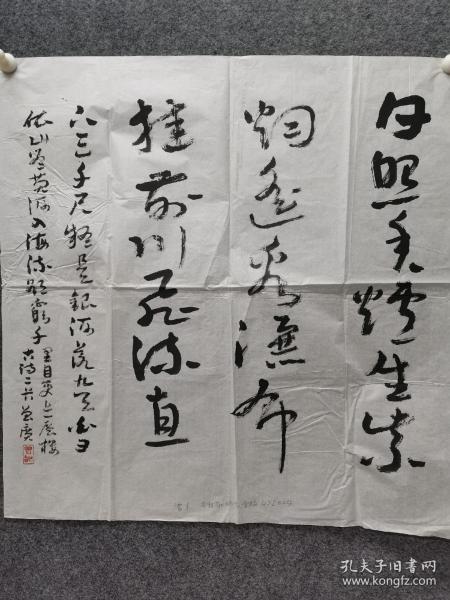 日照香爐生紫
烟遥看瀑布
挂前川飛流直
下三千尺疑是銀河落九天白日
依山尽黄河入海流欲窮千
里目更上層樓
古詩二首
孔夫子旧书网
www.kongfz.com